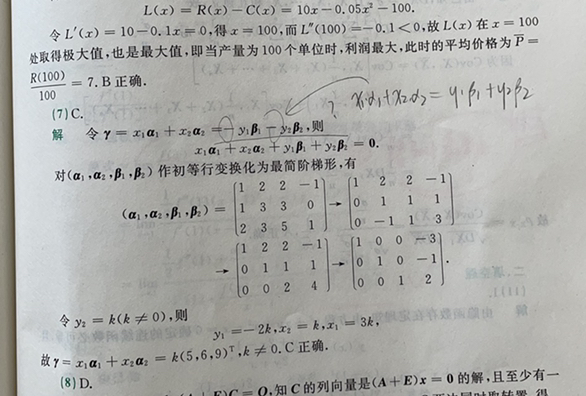 L(x) = R(x) - C(x) = 10x - 0.05x² - 100.
令 L′(x) = 10 - 0.1x = 0,得 x = 100,而 L″(100) = -0.1 < 0,故 L(x) 在 x = 100
处取得极大值,也是最大值,即当产量为 100 个单位时,利润最大,此时的平均价格为 P̅ =
R(100)/100 = 7. B 正确.
? x₁α₁+x₂α₂ = y₁β₁+y₂β₂
(7) C.
解 令 γ = x₁α₁ + x₂α₂ = -y₁β₁ - y₂β₂,则
x₁α₁ + x₂α₂ + y₁β₁ + y₂β₂ = 0.
对(α₁,α₂,β₁,β₂) 作初等行变换化为最简阶梯形,有
(α₁,α₂,β₁,β₂) = [1 2 2 -1; 1 3 3 0; 2 3 5 1] → [1 2 2 -1; 0 1 1 1; 0 -1 1 3]
→ [1 2 2 -1; 0 1 1 1; 0 0 2 4] → [1 0 0 -3; 0 1 0 -1; 0 0 1 2].
令 y₂ = k(k ≠ 0),则
y₁ = -2k, x₂ = k, x₁ = 3k,
故 γ = x₁α₁ + x₂α₂ = k(5,6,9)ᵀ, k ≠ 0. C 正确.
(8) D.
(A + E)C = O,知 C 的列向量是(A + E)x = 0 的解,且至少有一